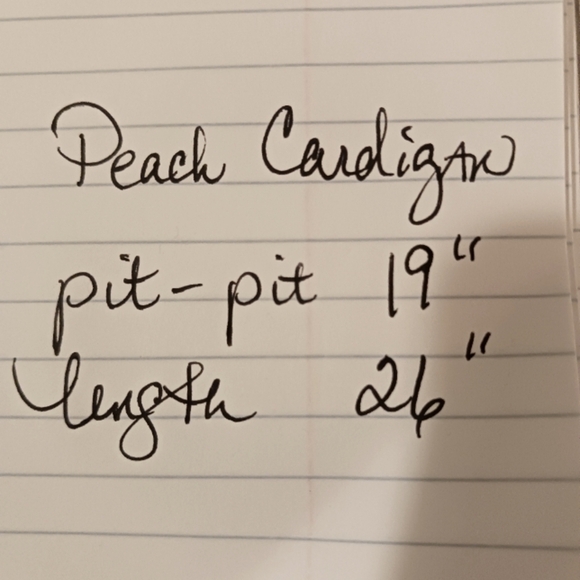 Peach Cardigan
pit-pit 19"
length 26"